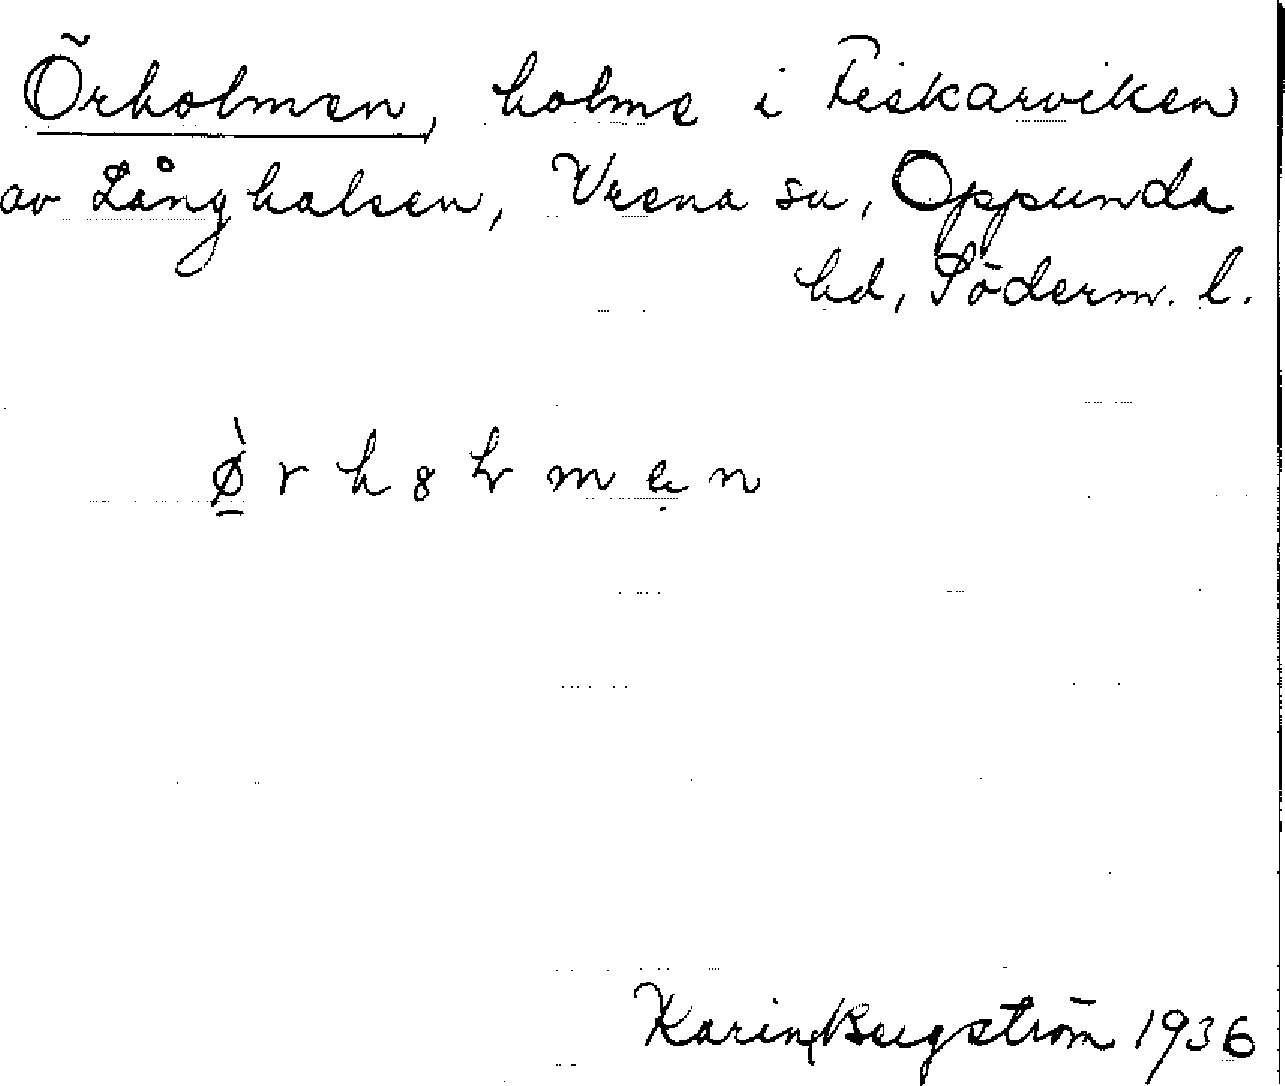 Örholmen, holme i Fiskarviken
av Långhalsen, Vrena sn, Oppunda
hd, Söderm. l.
Karin Bergström 1936